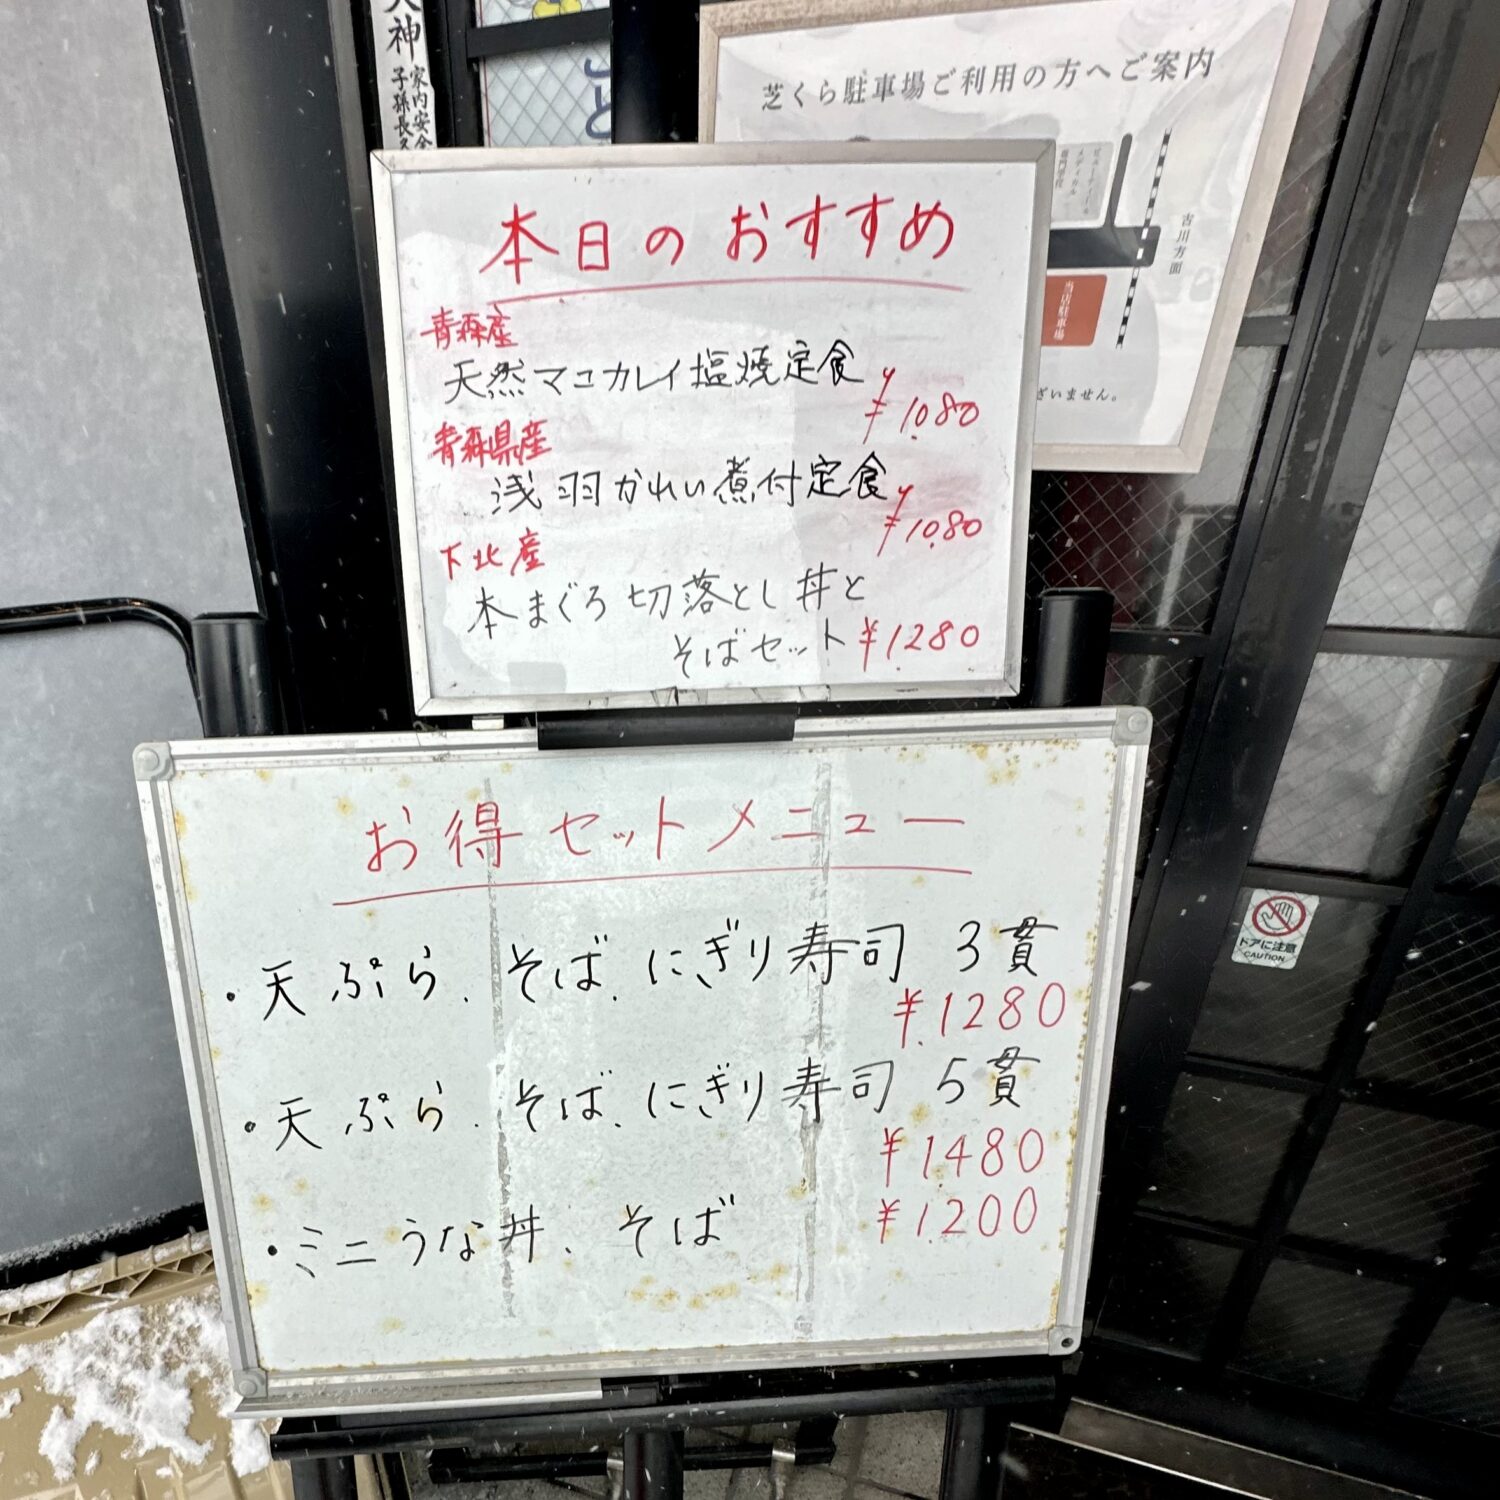 神
家内安全
子孫長久
芝くら駐車場ご利用の方へご案内
吉川方面
当店駐車場
ざいません。
本日のおすすめ
青森産
天然マコカレイ塩焼定食
¥1080
青森県産
浅羽かれい煮付定食
¥1080
下北産
本まぐろ切落とし丼と
そばセット ¥1.280
お得セットメニュー
・天ぷら、そば、にぎり寿司 3貫
¥.1280
・天ぷら、そば、にぎり寿司 5貫
¥1.480
・ミニうな丼、そば ¥1.200
ドアに注意
CAUTION